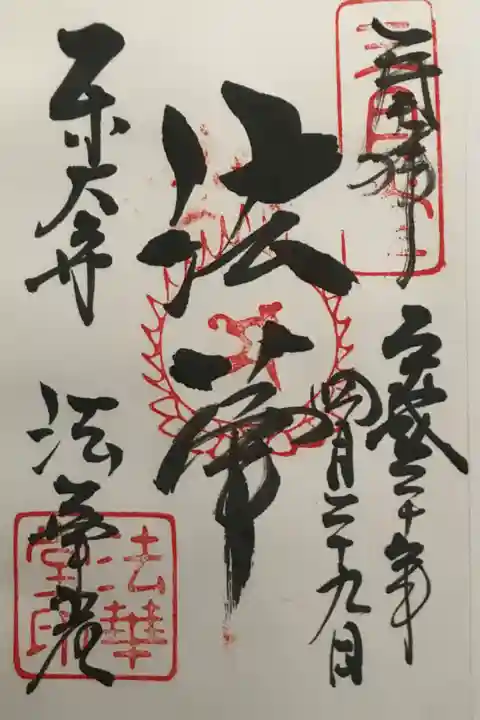 奉拝
平成三十年
四月二十九日
法華
東大寺
法華堂
法華堂印